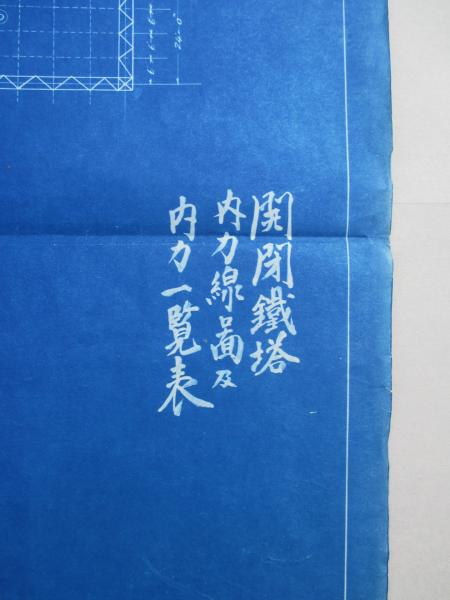 開閉鐵塔
内力線圖及
内力一覧表
24'-0